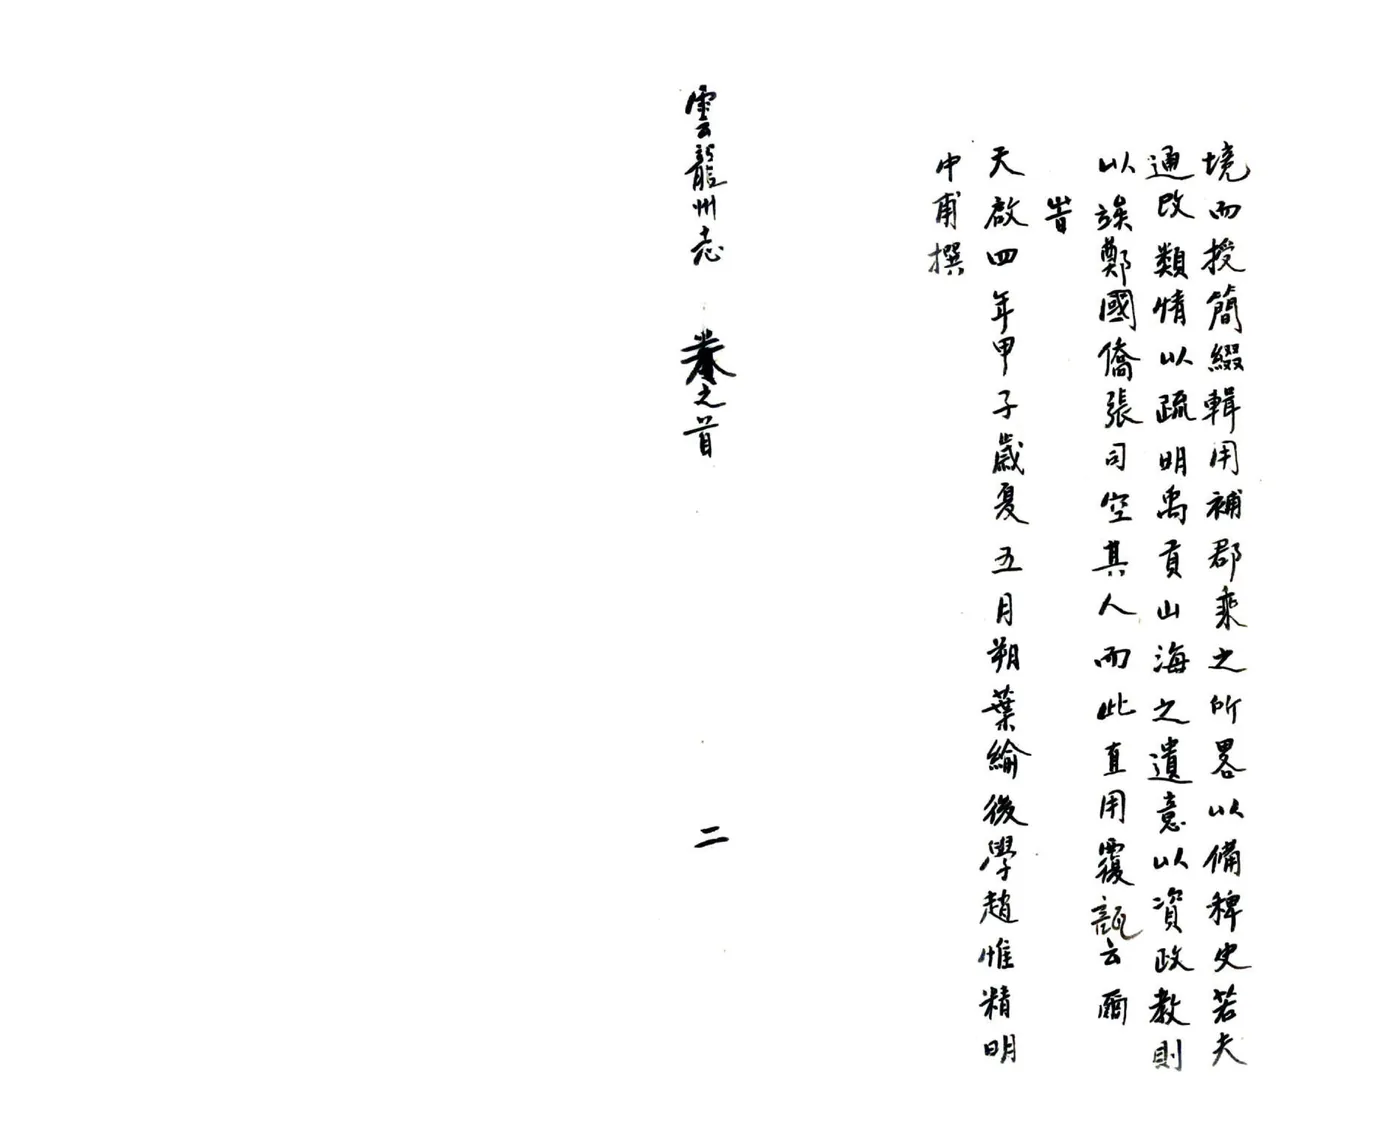 境而授簡綴輯用補郡乘之所畧以備稗史若夫
通改類情以疏明禹貢山海之遺意以資政教則
以竢鄭國僑張司空其人而此直用覆瓿云爾
旹
天啟四年甲子歲夏五月朔葉綸後學趙惟精明
中甫撰
雲龍州志 卷之首 二